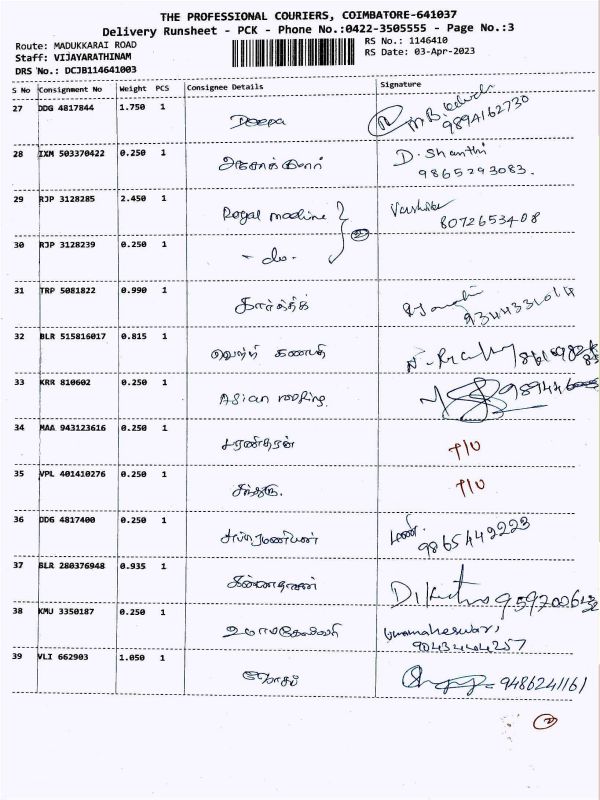 THE PROFESSIONAL COURIERS, COIMBATORE-641037
Delivery Runsheet - PCK - Phone No.:0422-3505555 - Page No.:3
Route: MADUKKARAI ROAD
RS No.: 1146410
Staff: VIJAYARATHINAM
RS Date: 03-Apr-2023
DRS No.: DCJB114641003
S No Consignment No Weight PCS Consignee Details Signature
27 DDG 4817844 1.750 1 Deepa 9894162730
28 IXM 503370422 0.250 1 அசோக்குமார் D. Shanthi
9865293083.
29 RJP 3128285 2.450 1 Royal machine Varshika
8072653408
30 RJP 3128239 0.250 1 - do -
31 TRP 5081822 0.990 1 கார்த்திக்
9344331014
32 BLR 515816017 0.815 1 வெற்றி கணபதி
33 KRR 810602 0.250 1 Asian roofing
34 MAA 943123616 0.250 1 சரண்தரன் T/U
35 VPL 401410276 0.250 1 T/U
36 DDG 4817400 0.250 1 சுப்ரமணியன் மணி.
9865442223
37 BLR 280376948 0.935 1
38 KMU 3350187 0.250 1 உமாமகேஸ்வரி Umamaheswari,
9043444257
39 VLI 662903 1.050 1 ஜோசப் 9486241161
2